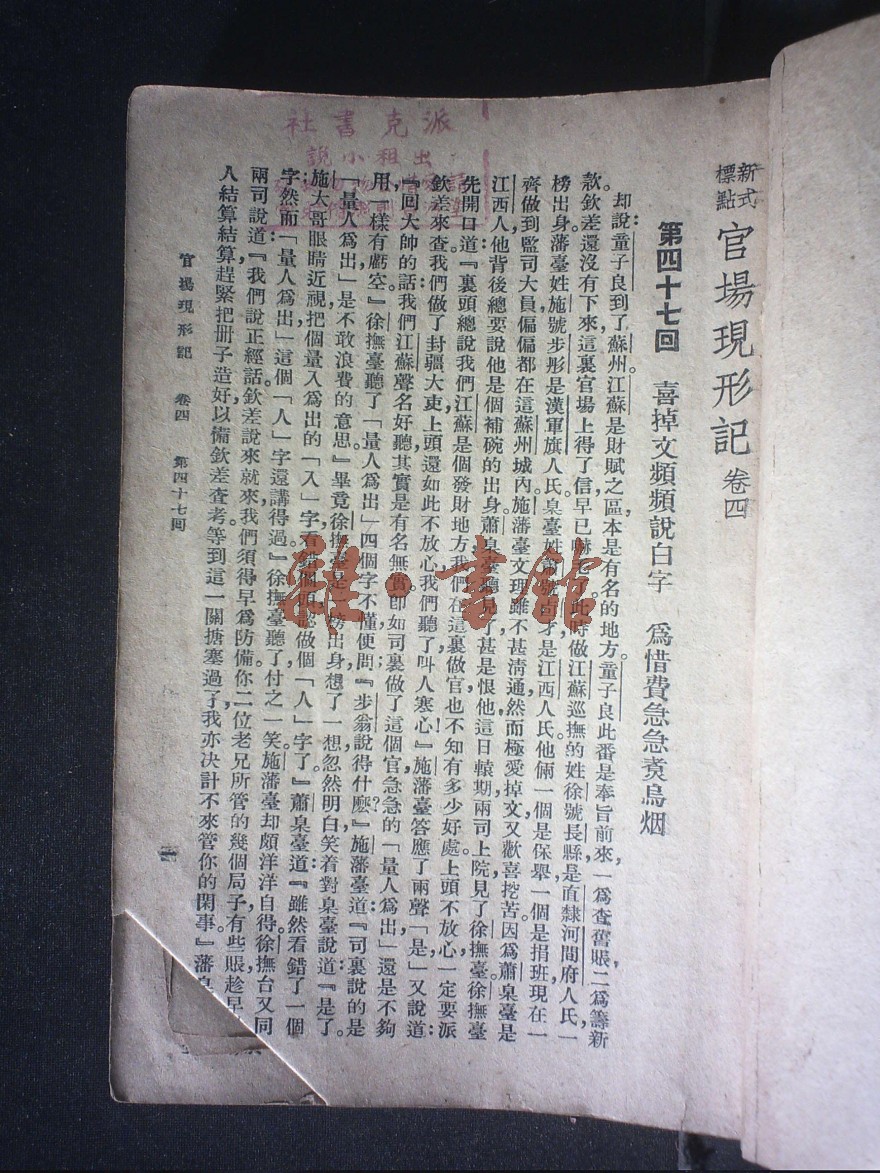 新式標點 官場現形記 卷四
第四十七回 喜掉文頻頻說白字 爲惜費急急煑烏烟
却說童子良到了蘇州江蘇是財賦之區本是有名的地方。童子良此番是奉旨前來，一爲查舊賬二爲籌新
款欽差還沒有下來，這裏官場上得了信早已 此時做江蘇巡撫的姓徐號長緜是直隸河間府人氏一
榜出身。藩臺姓施號步彤是漢軍旗人氏臬臺姓 才是江西人氏他倆一個是保舉一個是捐班現在一
齊做到監司大員偏偏都在這蘇州城內。施藩臺文理雖不甚淸通然而極愛掉文又歡喜挖苦。因爲蕭臬臺是
江西人他背後總要說他是個補碗的出身蕭臬臺聽見了甚是恨他這日轅期兩司上院見了徐撫臺。徐撫臺
先開口道：『裏頭總說我們江蘇是個發財地方我們在這裏做官也不知有多少好處上頭不放心一定要派
欽差來查我們做了封疆大吏上頭還如此不放心我們聽了叫人寒心！』施藩臺答應了兩聲「是」又說道：
『回大帥的話我們江蘇聲名好聽其實是有名無實卽如司裏做了這個官急急的「量人爲出」還是不夠
用，一樣有虧空』徐撫臺聽了「量人爲出」四個字不懂便問：『步翁說得什麽？』施藩臺道：『司裏說的是
「量人爲出」是不敢浪費的意思。』畢竟徐撫臺是一榜出身想了一想忽然明白笑着對臬臺說道：『是了。
施大哥眼睛近視把個量入爲出的「入」字看錯個頭認做個「人」字了。』蕭臬臺道：『雖然看錯了一個
字然而「量人爲出」這個「人」字還講得過。』徐撫臺聽了付之一笑施藩臺却頗洋洋自得。徐撫台又同
兩司說道：『我們說正經話欽差說來就來我們須得早爲防備你二位老兄所管的幾個局子有些賬趁早
人結算結算趕緊把册子造好以備欽差查考。等到這一關搪塞過了我亦決計不來管你的閑事』藩
官場現形記 卷四 第四十七回 一
派克書社
出租小說
雜·書館